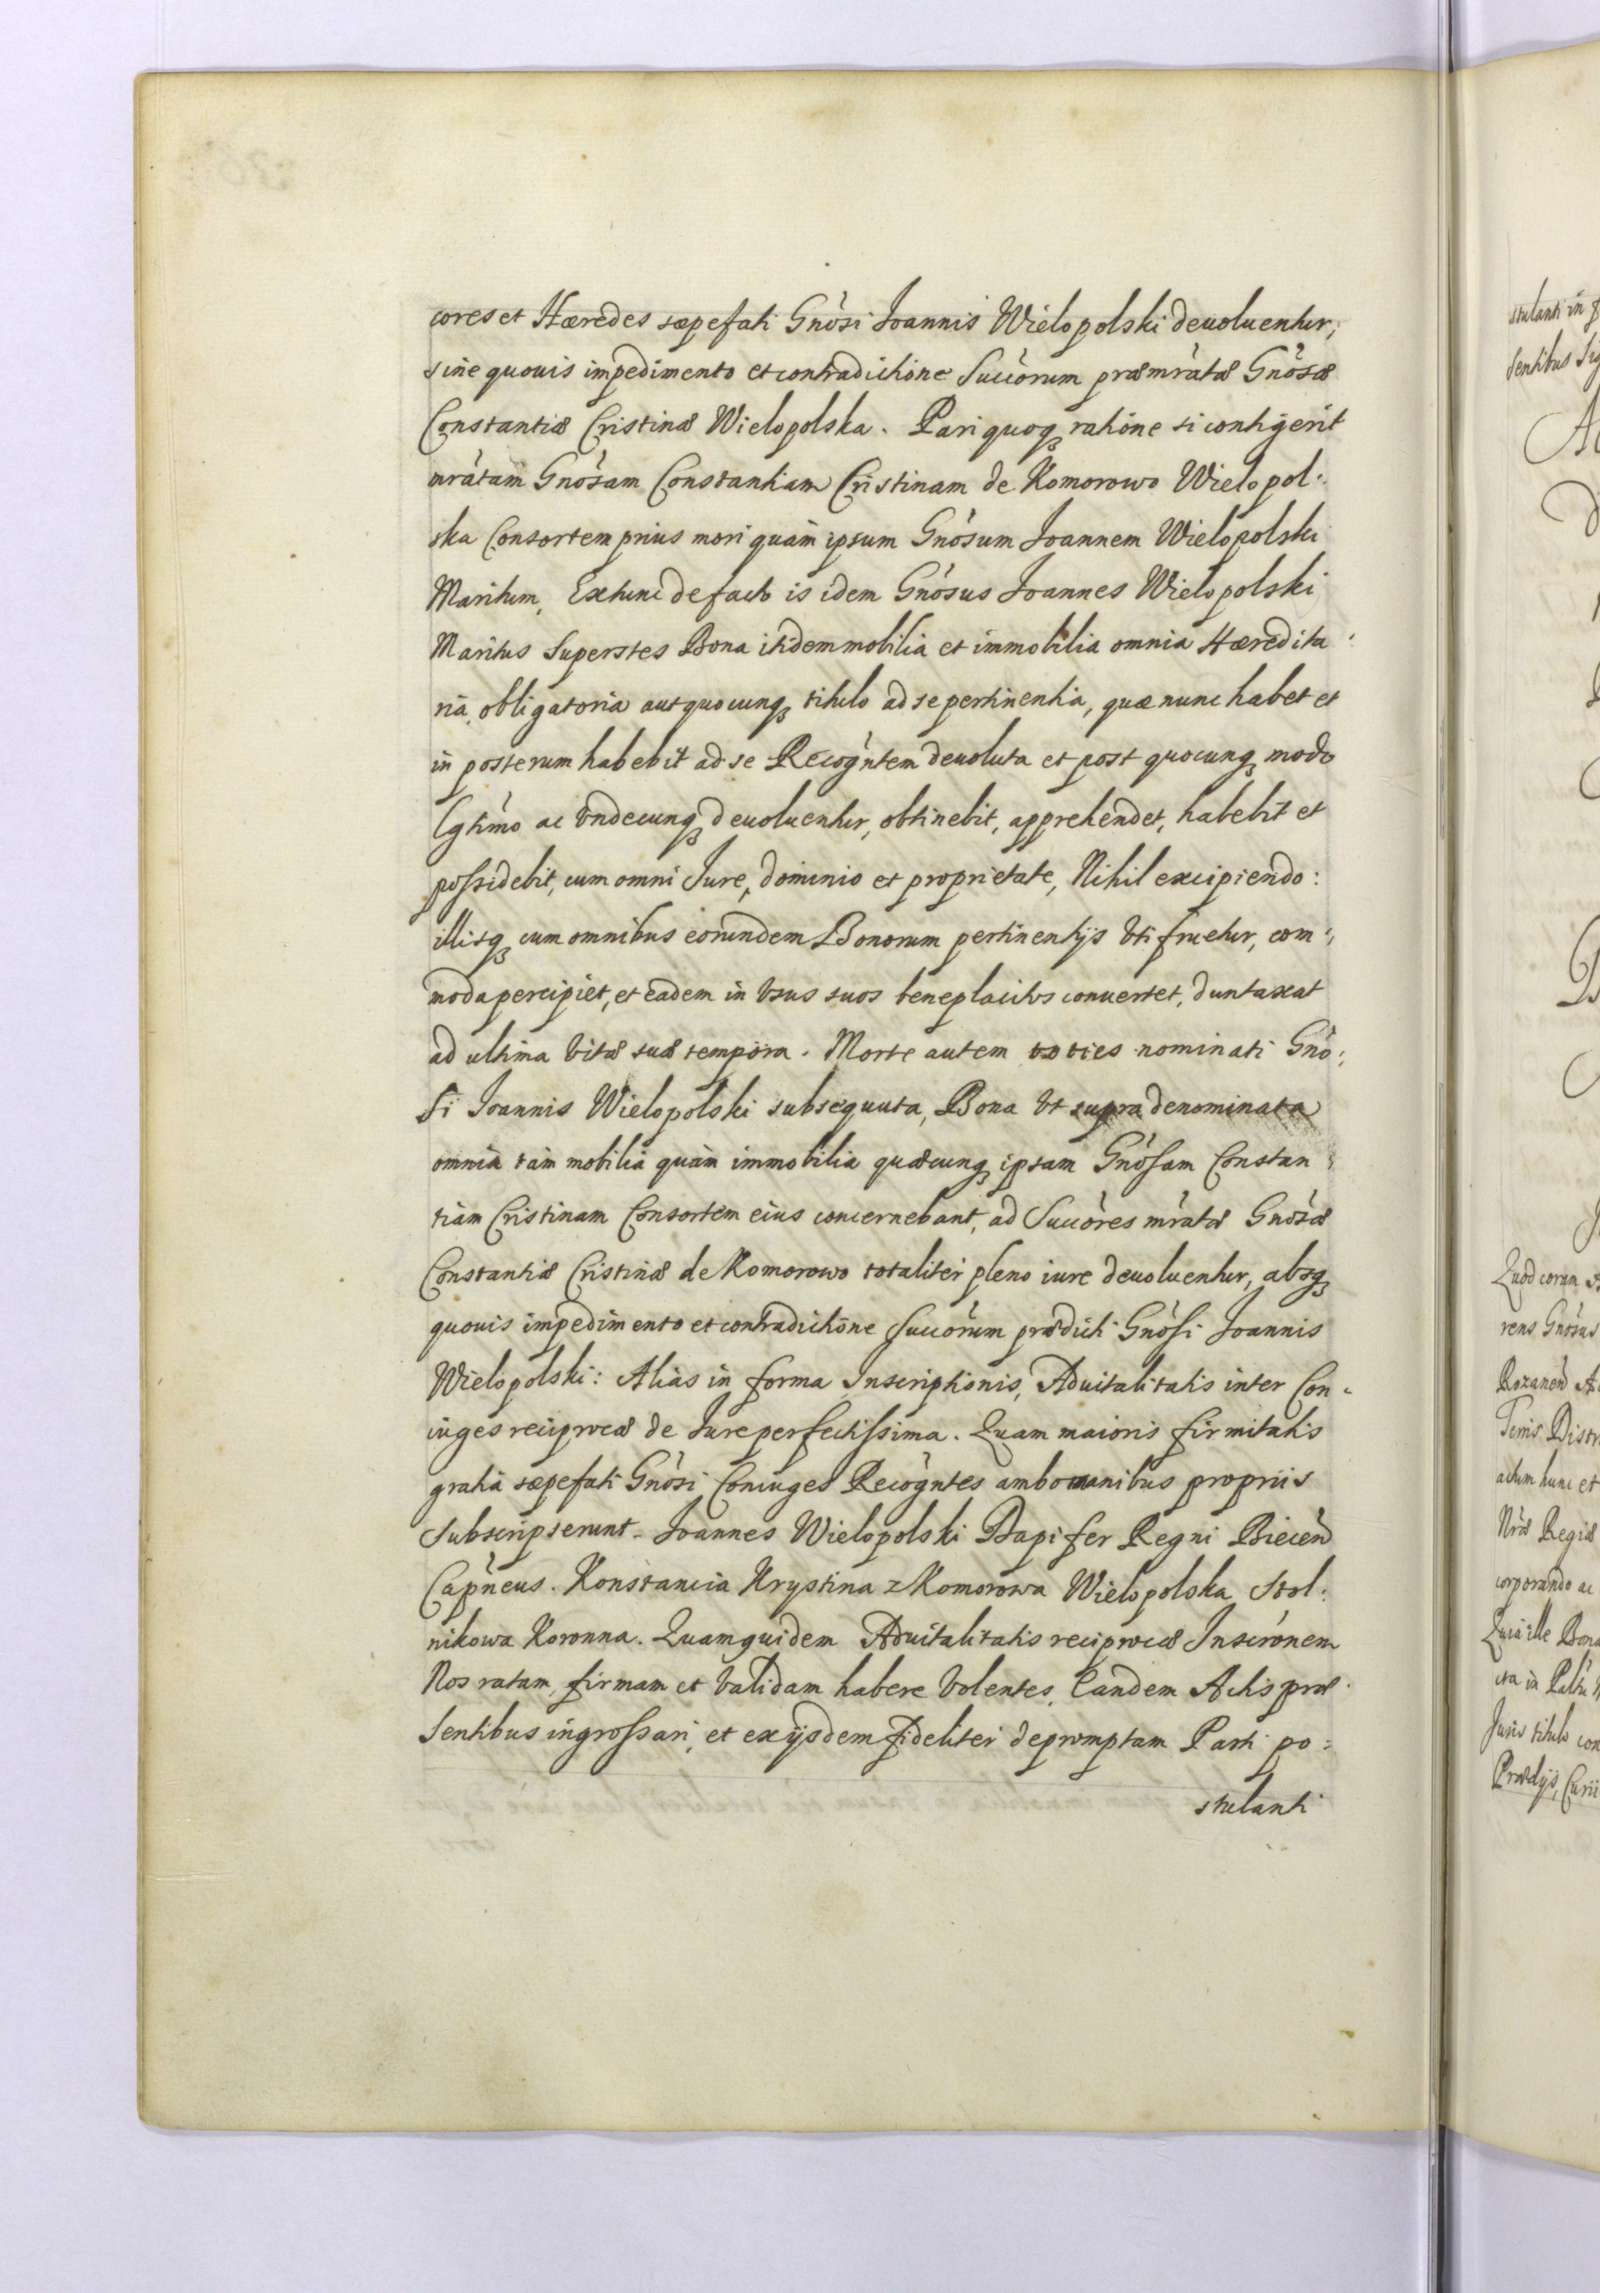 cores et Hæredes sæpefati Gnòsi Joannis Wielopolski deuoluentur,
sine quouis impedimento et contradictione Succòrum præmràtæ Gnòsæ
Constantiæ Cristinæ Wielopolska. Pari quoqꝫ ratione si contigerit
mràtam Gnòsam Constantiam Cristinam de Komorowo Wielopol:
ska Consortem prius mori quàm ipsum Gnòsum Joannem Wielopolski
Maritum, Extunc de facto is idem Gnòsus Joannes Wielopolski
Maritus Superstes Bona itidem mobilia et immobilia omnia Hæredita:
ria, obligatoria aut quocunqꝫ titulo ad se pertinentia, quæ nunc habet et
in posterum habebit ad se Recogǹtem deuoluta et post quocunqꝫ modo
lgtimo ac vndecunqꝫ deuoluentur, obtinebit, apprehendet, habebit et
possidebit, cum omni Jure, dominio et proprietate, Nihil excipiendo:
illisqꝫ cum omnibus eorundem Bonorum pertinentijs vti fruetur, com:
moda percipiet, et eadem in vsus suos beneplacitos conuertet, duntaxat
ad ultima vitæ suæ tempora. Morte autem toties nominati Gnò:
si Joannis Wielopolski subsequuta, Bona vt supra denominata
omnia tàm mobilia quàm immobilia quæcunqꝫ ipsam Gnòsam Constan:
tiam Cristinam Consortem eius concernebant, ad Succòres mràtæ Gnòsæ
Constantiæ Cristinæ de Komorowo totaliter pleno iure deuoluentur, absqꝫ
quouis impedimento et contradictione Succòrum prædicti Gnòsi Joannis
Wielopolski: Aliàs in forma Inscriptionis, Aduitalitatis inter Con:
iuges reciprocæ de Jure perfectissima. Quam maioris firmitatis
gratia sæpefati Gnòsi Coniuges Recogǹtes ambo manibus propriis
Subscripserunt. Joannes Wielopolski Dapifer Regni Biecen̄
Capn̄eus. Konstancia Krystina z Komorowa Wielopolska Stol:
nikowa Koronna. Quamquidem Aduitalitatis reciprocæ Inscrònem
Nos ratam, firmam et validam habere volentes, Eandem Actis præ:
sentibus ingrossari, et ex ijsdem fideliter depromptam Parti po:
stulanti
stulanti in
sentibus
Quod coram
rens Gnòsus
Rozanen̄
Terris Distr
actum hunc et
Nræ Regiæ
corporando ac
Quia ille Bona
Juris titulo con
Prædijs, Curii